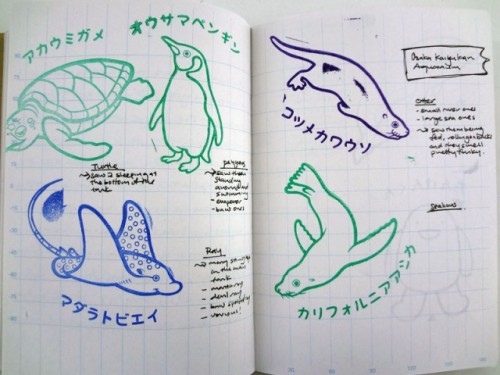 アカウミガメ
オウサマペンギン
Turtle
→ saw 2 sleeping at
the bottom of the
tank
penguin
→ saw them
standing
around and
swimming
- emperor
マダラトビエイ
Ray
→ many
in the main
tank
- manta ray
- devil ray
- various!
Osaka Kaiyukan
Aquarium
コツメカワウソ
otter
- small river ones
- large sea ones
→ saw them being
fed,
and they smell
pretty funky.
sealions
カリフォルニアアシカ